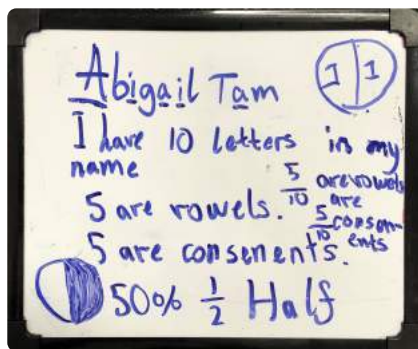 Abigail Tam
1 1
I have 10 letters in my
name
5 are vowels.
5/10 are vowels
are
5/10 conson-
ents
5 are consenents.
50% 1/2 Half